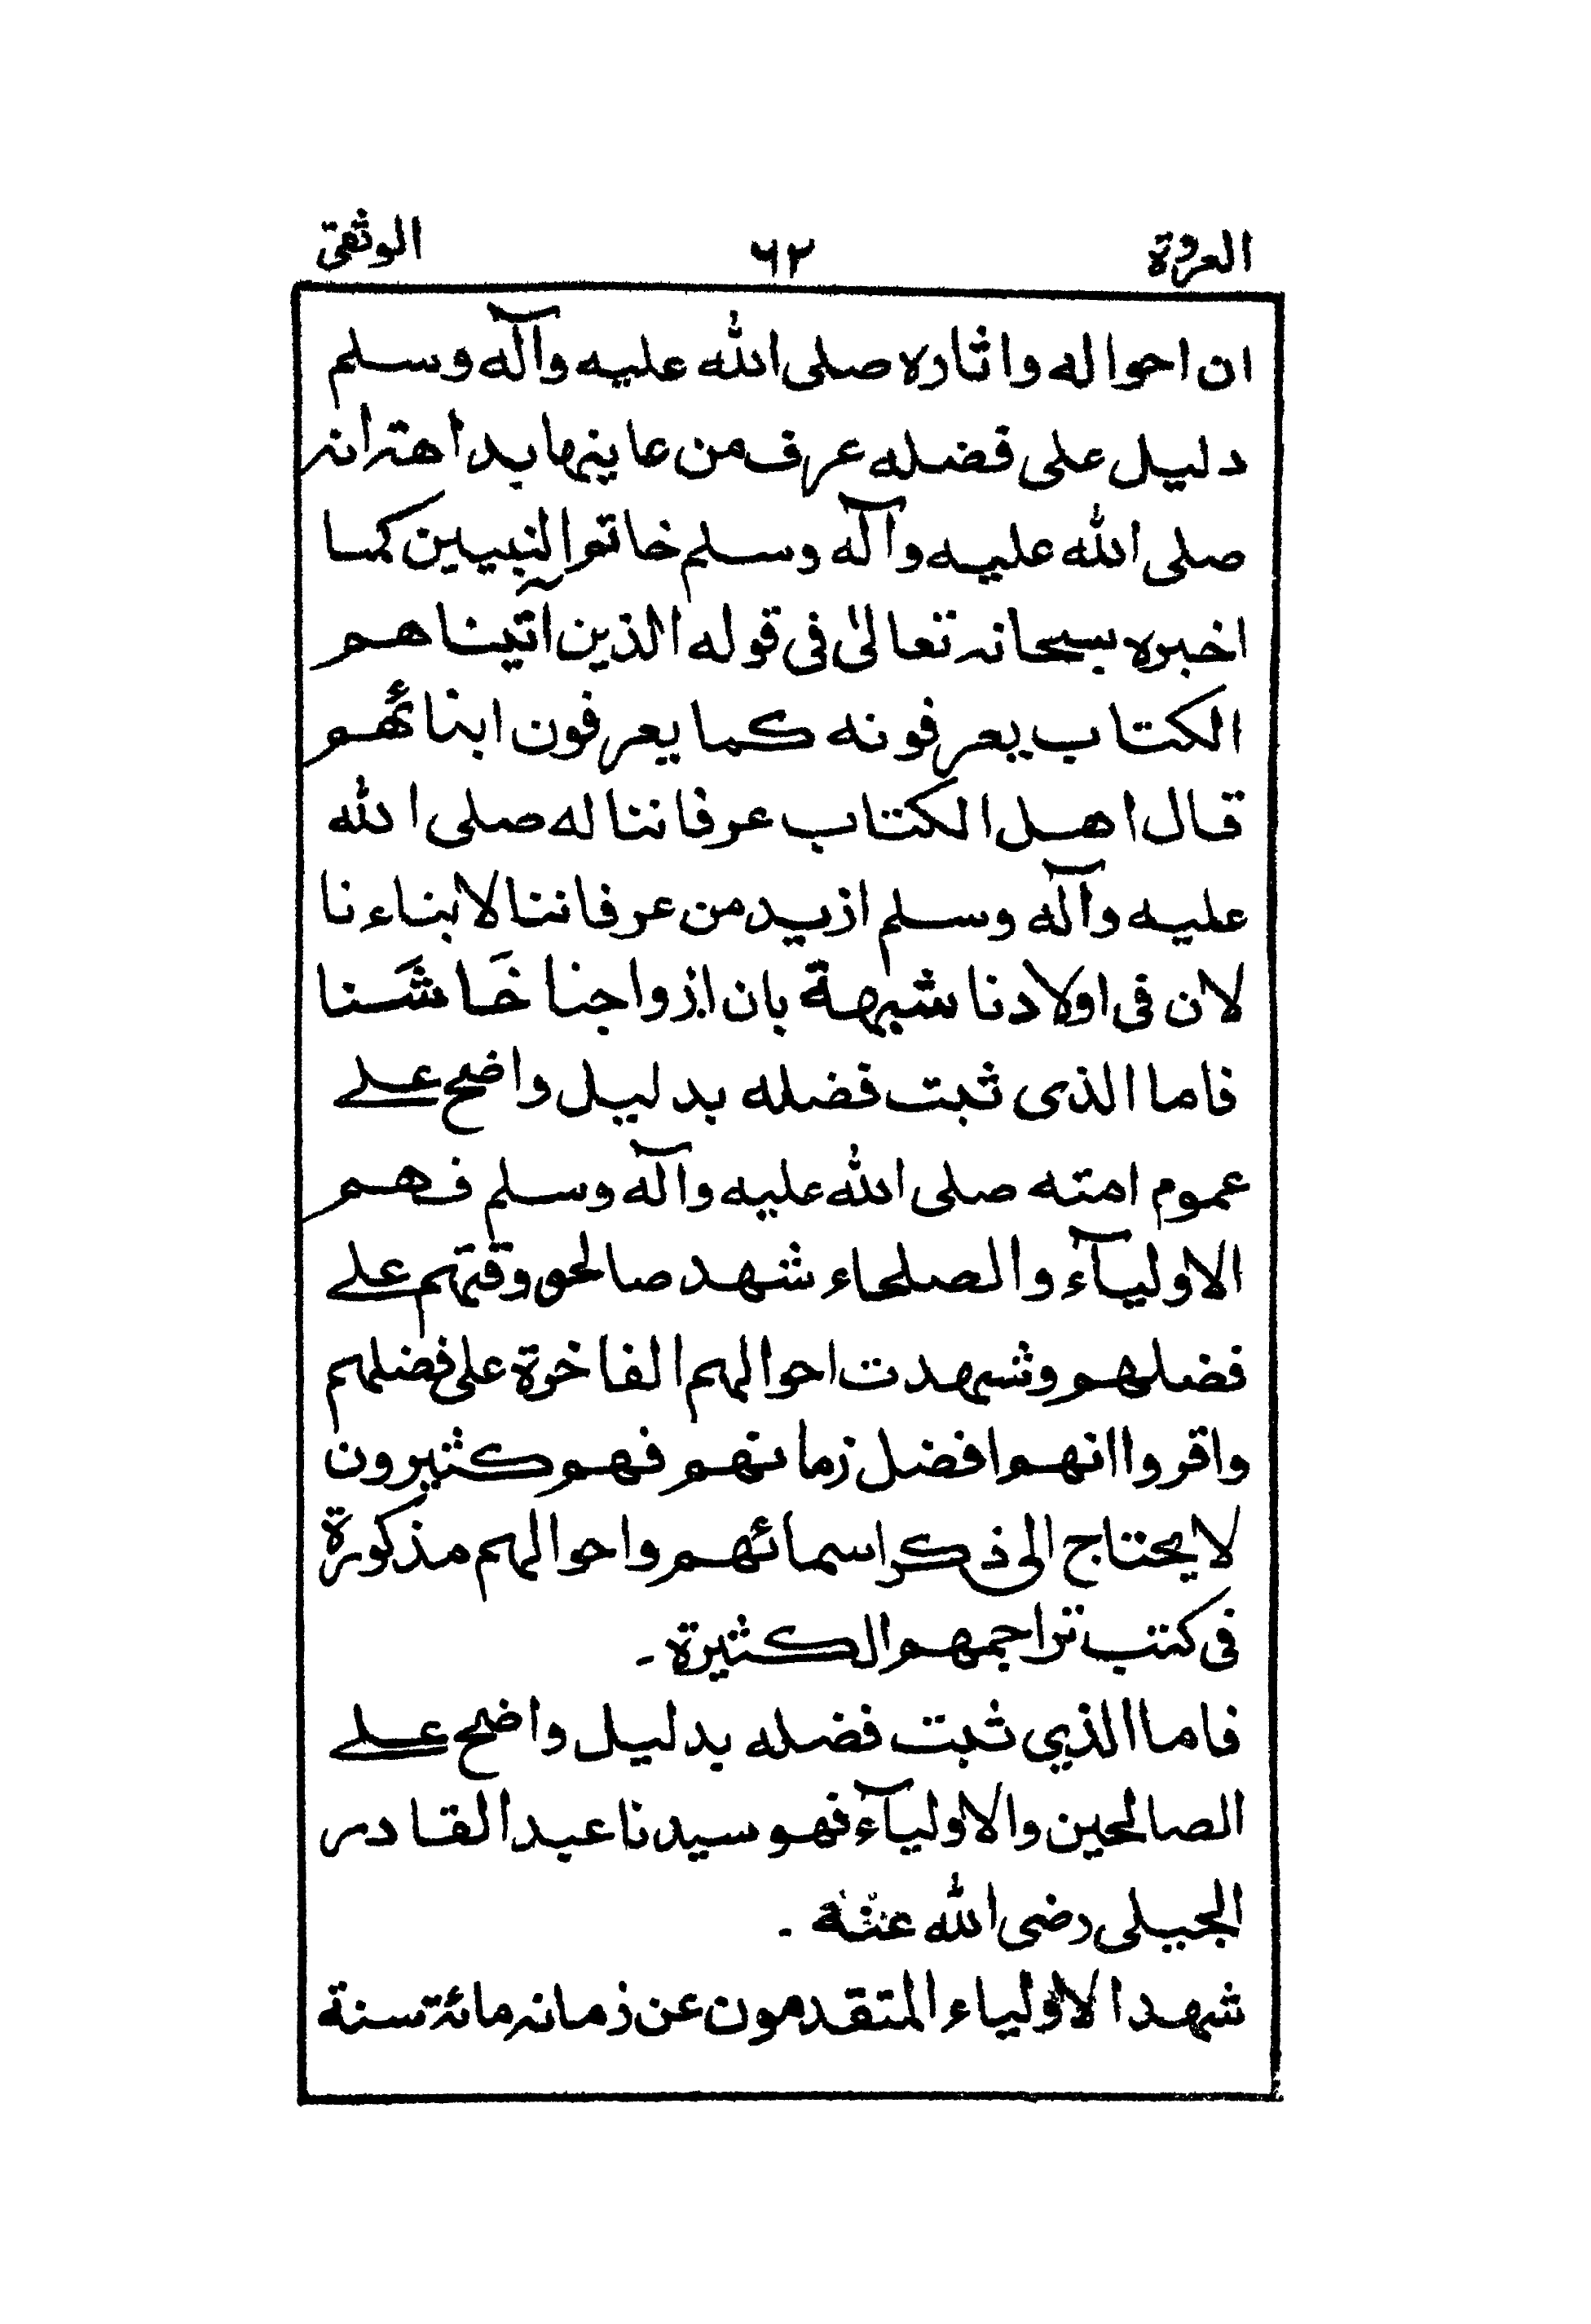 العروة ٦٢ الوثقى
ان احواله واثاره صلى الله عليه وآله وسلم
دليل على فضله عرف من عاينها بداهة انه
صلى الله عليه وآله وسلم خاتم النبيين كما
اخبره سبحانه تعالىٰ فى قوله الذين آتيناهم
الكتاب يعرفونه كما يعرفون ابنائهم
قال اهل الكتاب عرفاننا له صلى الله
عليه وآله وسلم ازيد من عرفاننا لابناءنا
لان فى اولادنا شبهة بان ازواجنا خَاشَنا
فاما الذى ثبت فضله بدليل واضح على
عموم امته صلى الله عليه وآله وسلم فهم
الاولياۤء والصلحاء شهد صالحو وقتهم على
فضلهم وشهدت احوالهم الفاخرة على فضلهم
واقروا انهم افضل زمانهم فهم كثيرون
لا يحتاج الى ذكر اسمائهم واحوالهم مذكورة
فى كتب تراجمهم الكثيرة -
فاما الذي ثبت فضله بدليل واضح على
الصالحين والاولياۤء فهو سيدنا عبد القادر
الجيلى رضى الله عنه -
شهد الاولياء المتقدمون عن زمانه مائة سنة